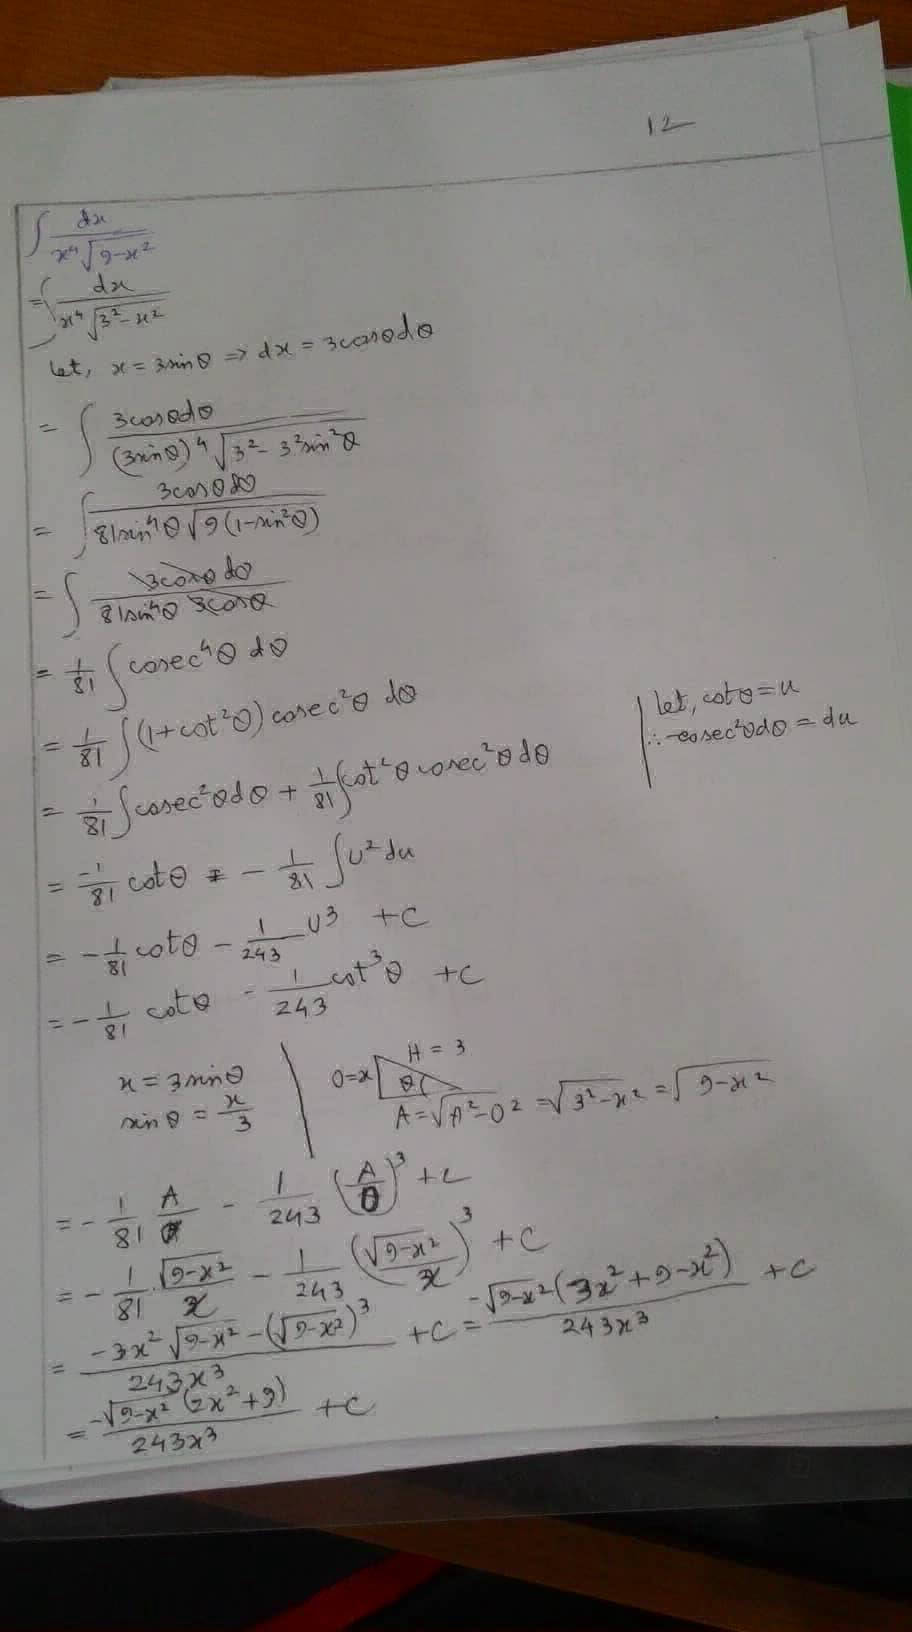 12
∫ dx / x⁴√(9-x²)
= ∫ dx / x⁴√(3²-x²)
Let, x = 3sinθ ⇒ dx = 3cosθdθ
= ∫ 3cosθdθ / (3sinθ)⁴√(3²-3²sin²θ)
= ∫ 3cosθdθ / 81sin⁴θ√(9(1-sin²θ))
= ∫ 3cosθdθ / 81sin⁴θ 3cosθ
= 1/81 ∫ cosec⁴θ dθ
= 1/81 ∫(1+cot²θ)cosec²θ dθ
let, cotθ = u
∴ -cosec²θdθ = du
= 1/81 ∫cosec²θdθ + 1/81 ∫cot²θ cosec²θdθ
= -1/81 cotθ - 1/81 ∫u² du
= -1/81 cotθ - 1/243 u³ + c
= -1/81 cotθ - 1/243 cot³θ + c
x = 3sinθ
sinθ = x/3
H = 3
O=x
θ
A = √(H²-O²) = √(3²-x²) = √(9-x²)
= -1/81 A/O - 1/243 (A/O)³ + c
= -1/81 . √(9-x²)/x - 1/243 (√(9-x²)/x)³ + c
= (-3x²√(9-x²) - (√(9-x²))³) / 243x³ + c = -√(9-x²)(3x²+9-x²) / 243x³ + c
= -√(9-x²)(2x²+9) / 243x³ + c